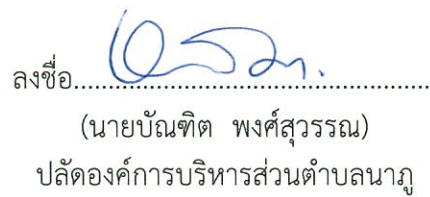 ลงชื่อ.............................................
(นายบัณฑิต พงศ์สุวรรณ)
ปลัดองค์การบริหารส่วนตำบลนาภู